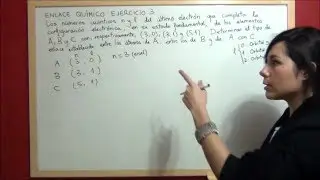 ENLACE QUÍMICO EJERCICIO 3
Los números cuánticos n y l del último electrón que completa la
configuración electrónica, en su estado fundamental, de los elementos
A, B y C son, respectivamente, (3,0), (3,1) y (5,1). Determinar el tipo de
enlace entre los átomos de A, entre los de B y de C con
l 0 Orbital
1 Orbital
2 Orbital
A (3, 0) n = 3 (nivel)
B (3, 1)
C (5, 1)